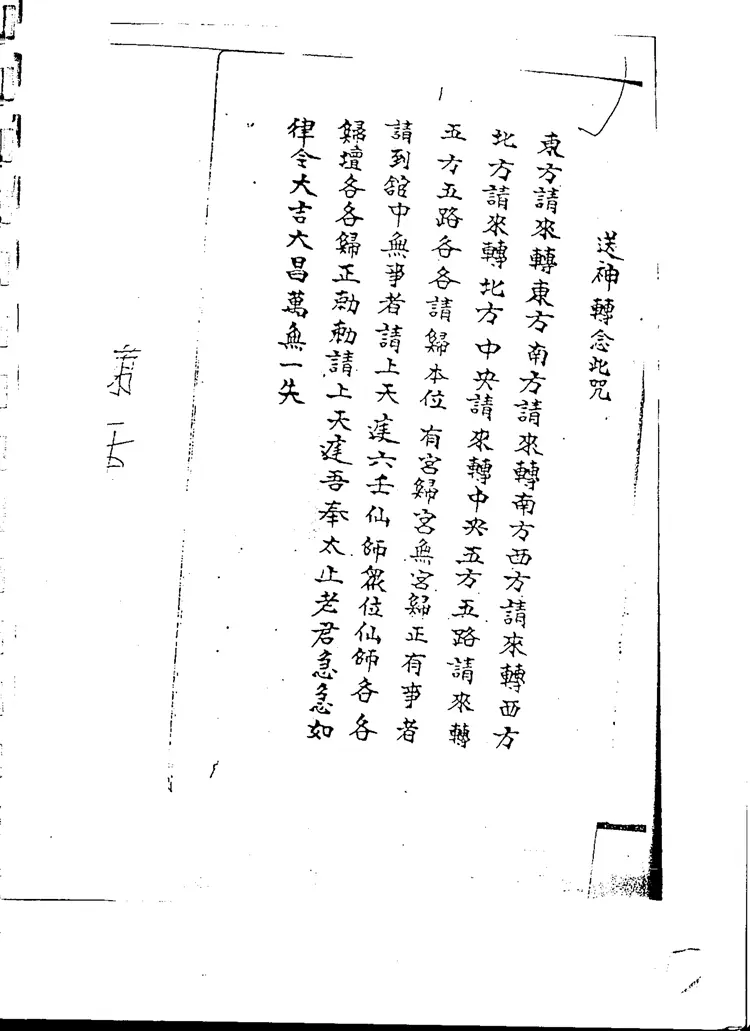 送神轉念此咒
東方請來轉東方南方請來轉南方西方請來轉西方
北方請來轉北方中央請來轉中央五方五路請來轉
五方五路各各請歸本位有宮歸宮無宮歸正有事者
請到舘中無事者請上天庭六壬仙師眾位仙師各各
歸壇各各歸正勅勅請上天庭吾奉太上老君急急如
律令大吉大昌萬無一失